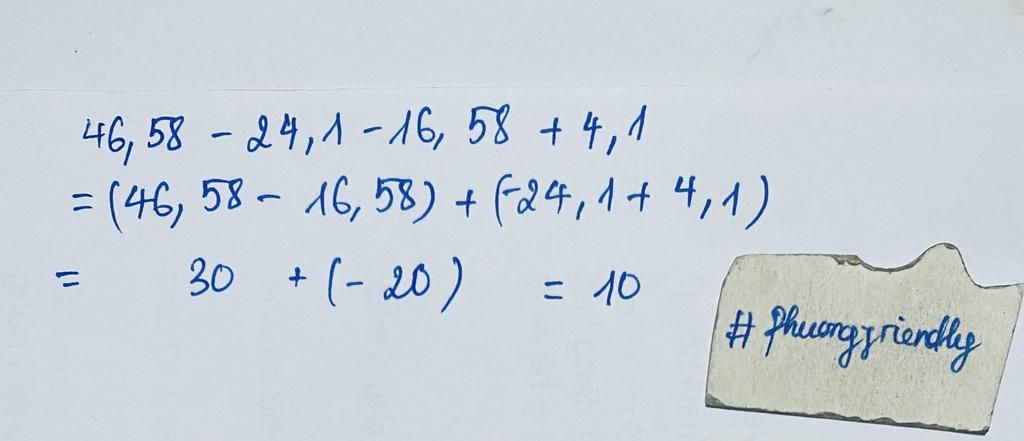 46,58 - 24,1 - 16,58 + 4,1
= (46,58 - 16,58) + (-24,1 + 4,1)
= 30 + (- 20) = 10
# Phuongfriendly